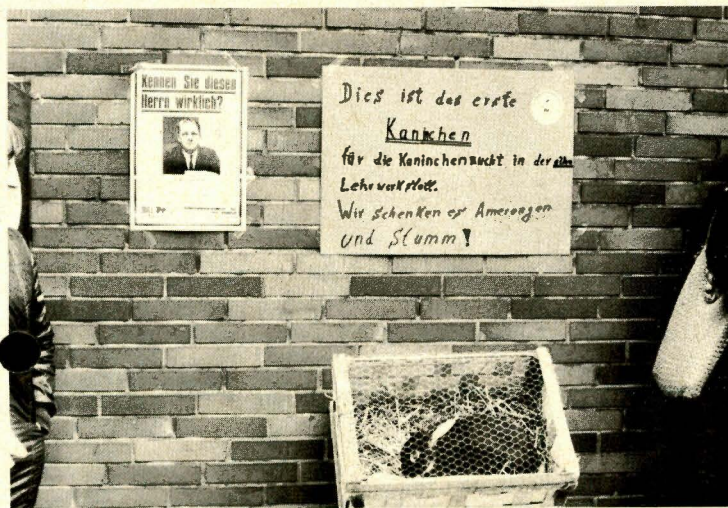 Kennen Sie diesen
Herrn wirklich?
Dies ist das erste
Kaninchen
für die Kaninchenzucht in der alten
Lehrwerkstatt.
Wir schenken es Amerongen
und Stumm!